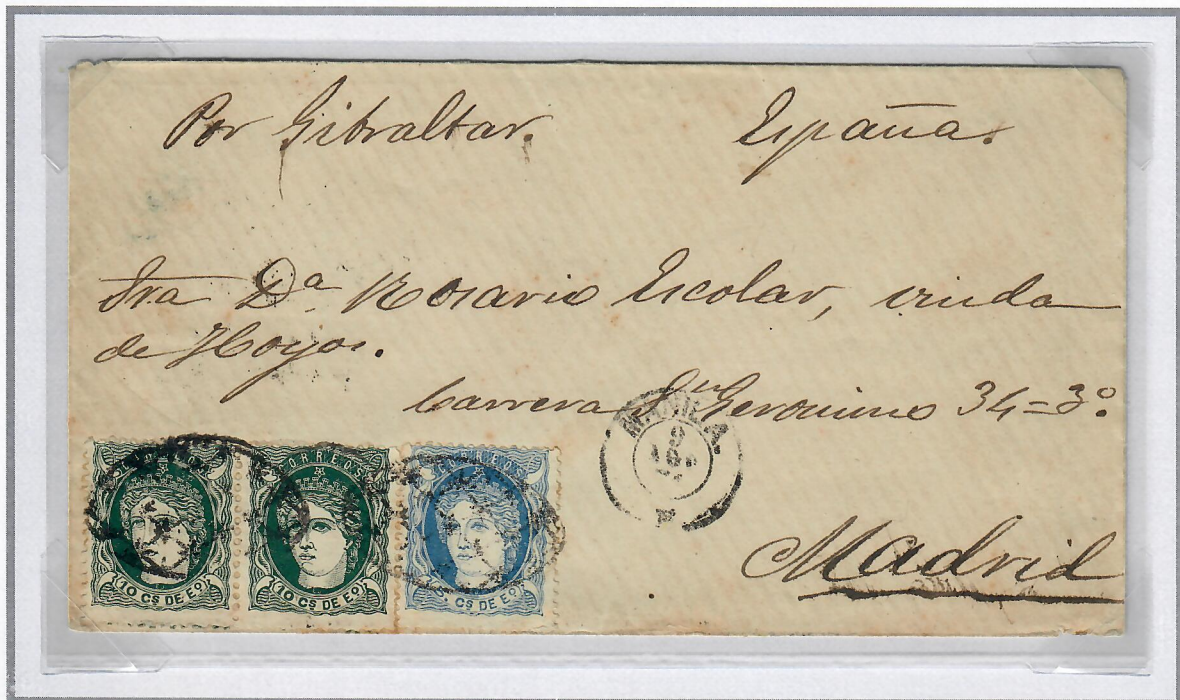 Por Gibraltar. España.
Sra Dª Rosario Escolar, viuda
de Hoyos.
Carrera Sn Geronimo 34=3º.
MANILA.
9
Madrid
CORREOS
10 Cs DE Eº
10 Cs DE Eº
Cs DE Eº